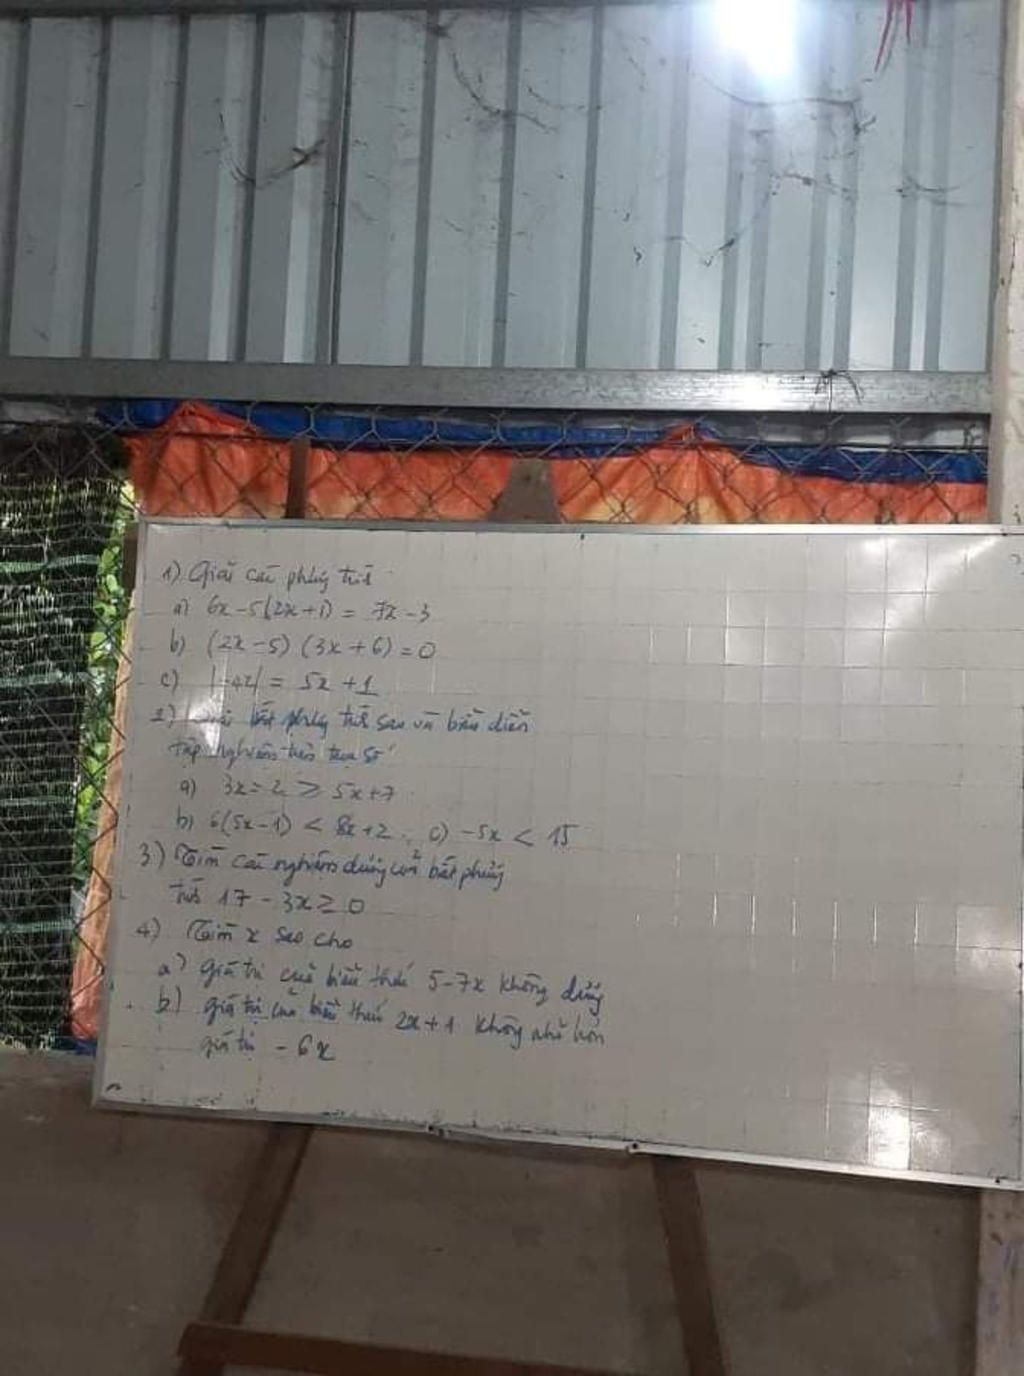 1) Giải các phương trình
a) 6x - 5(2x+1) = 7x - 3
b) (2x-5) (3x+6) = 0
c) |-4x| = 5x + 1
2) bất phương trình sau và biểu diễn
tập nghiệm trên trục số
a) 3x - 2 ≥ 5x+7
b) 6(5x-1) < 8x+2. c) -5x < 15
3) Tìm các nghiệm dương của bất phương
trình 17 - 3x ≥ 0
4) Tìm x sao cho
a) giá trị của biểu thức 5-7x không dương
b) giá trị của biểu thức 2x+1 không nhỏ hơn
giá trị -6x